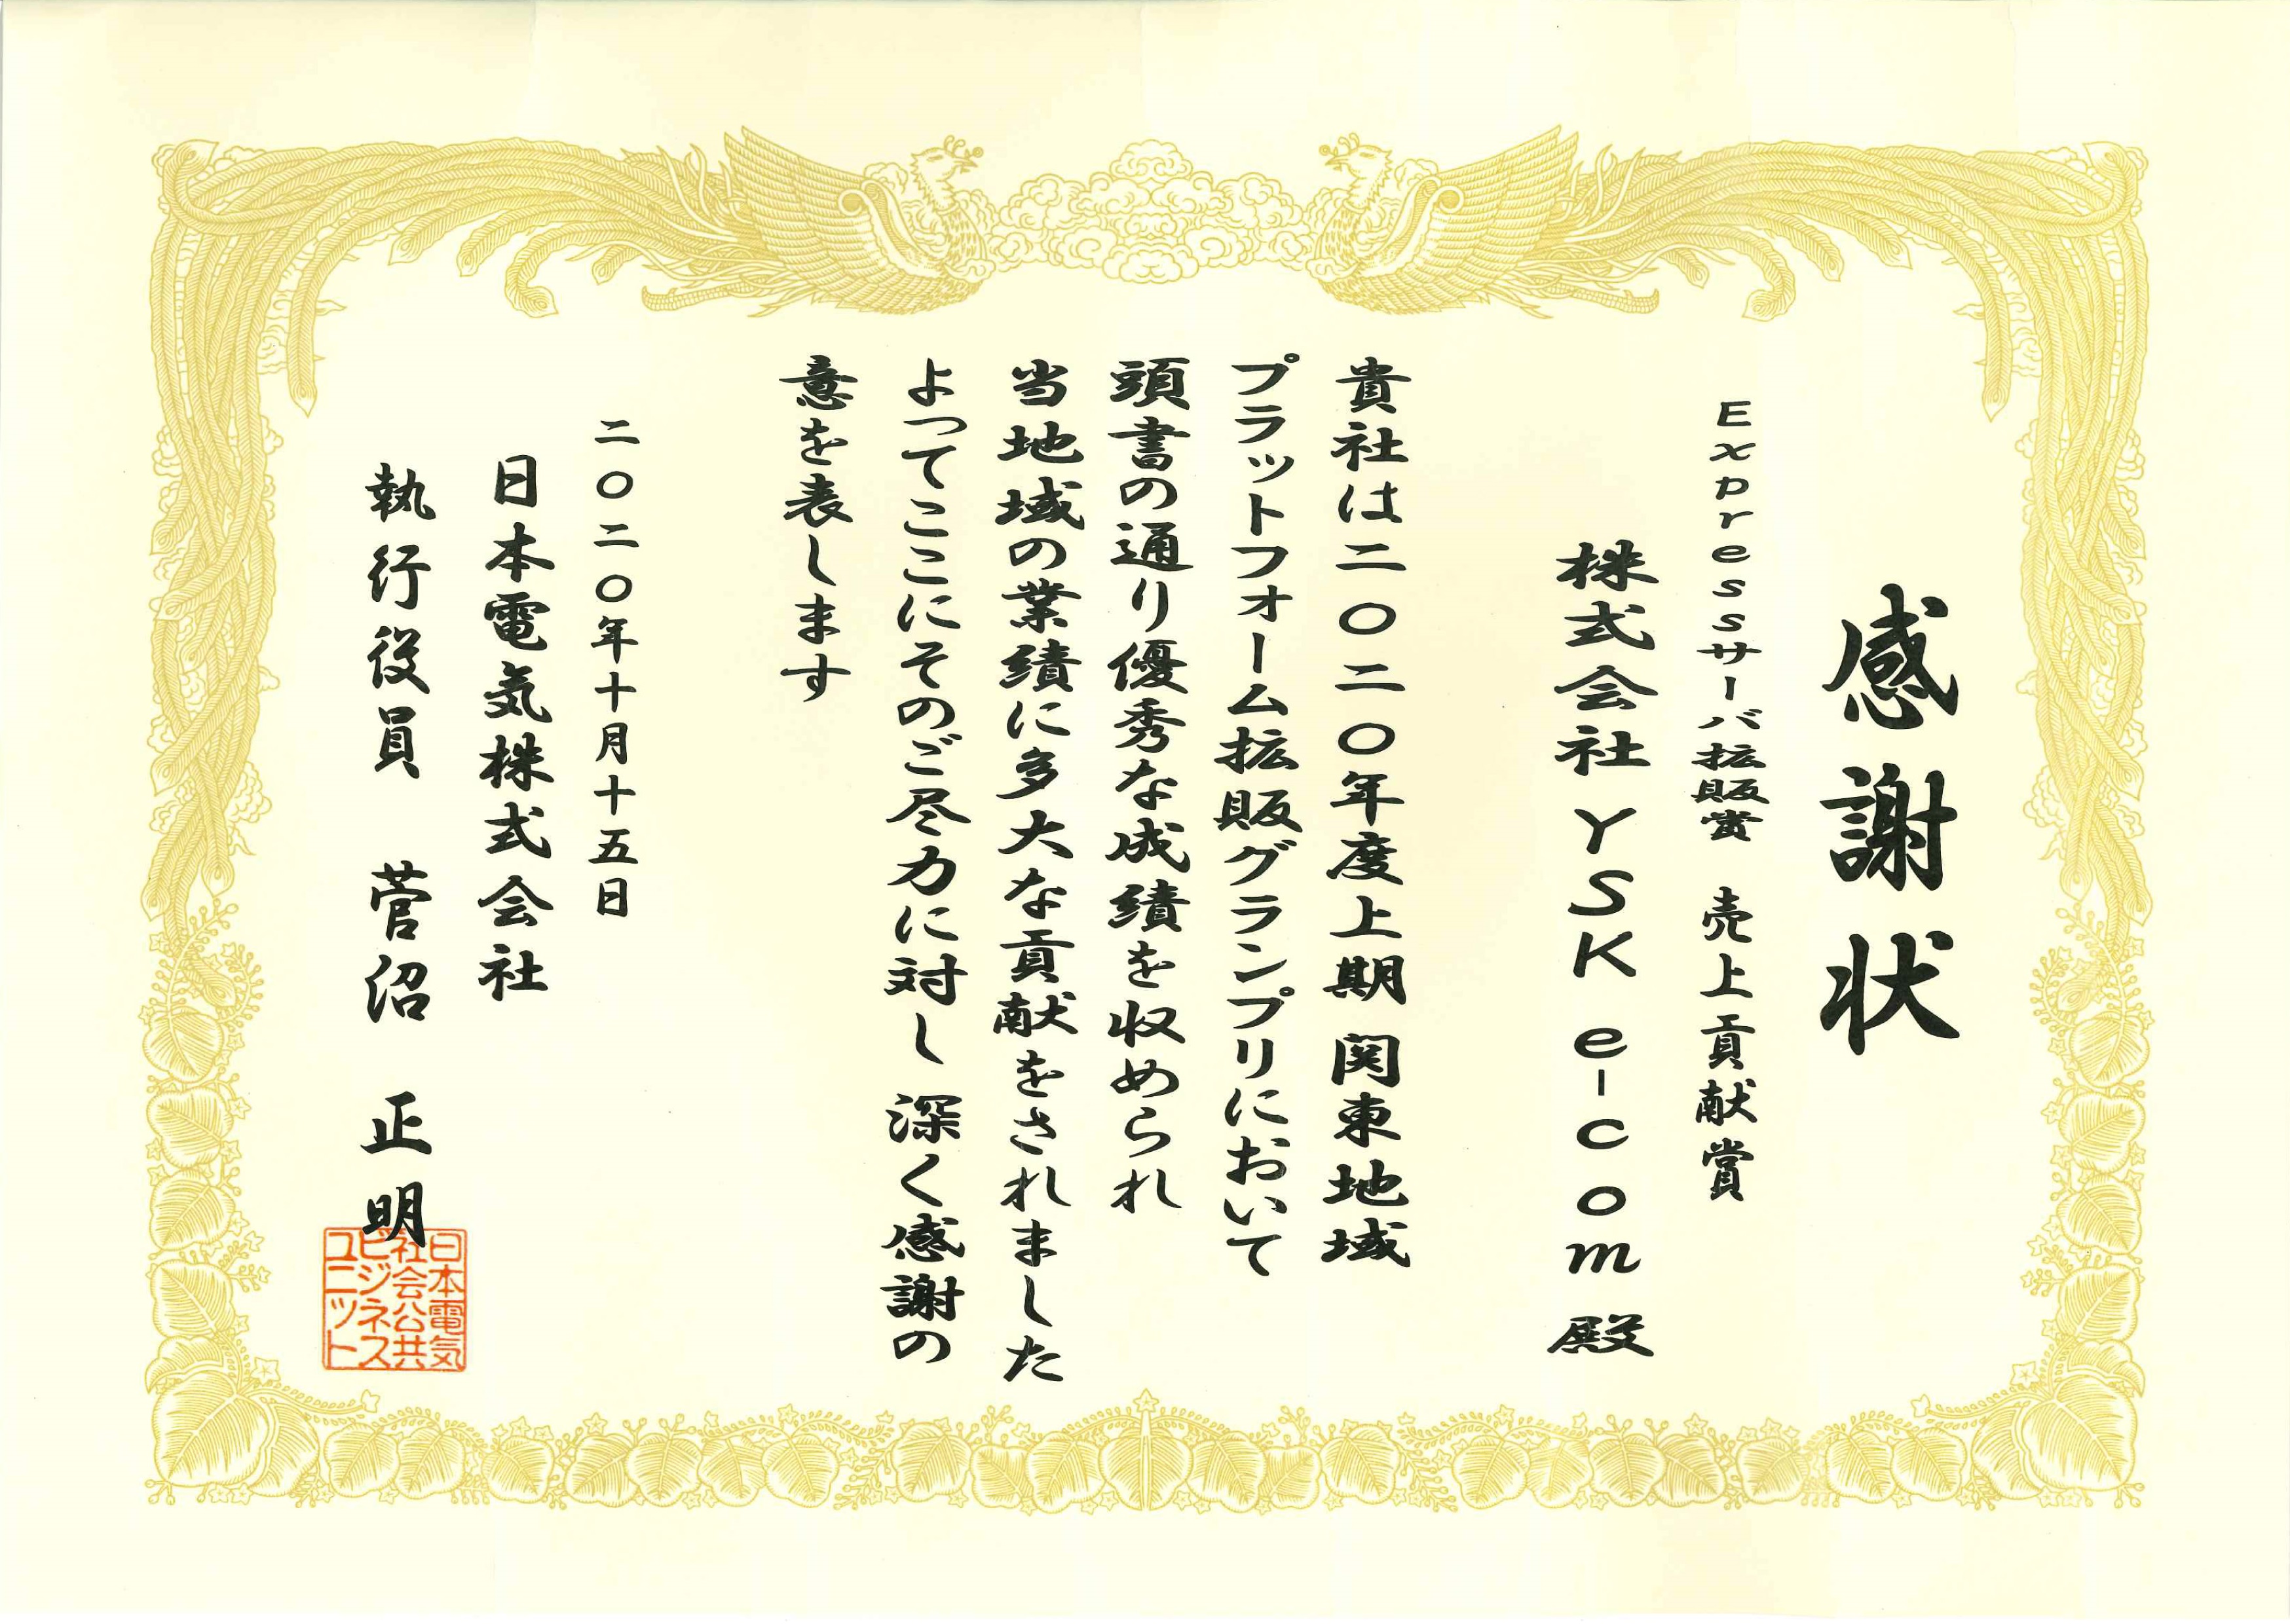 感謝状
Expressサーバ拡販賞 売上貢献賞
株式会社YSK e-com 殿
貴社は二〇二〇年度上期 関東地域
プラットフォーム拡販グランプリにおいて
頭書の通り優秀な成績を収められ
当地域の業績に多大な貢献をされました
よってここにそのご尽力に対し 深く感謝の
意を表します
二〇二〇年十月十五日
日本電気株式会社
執行役員 菅沼 正明
日本電気
社会公共
ビジネス
ユニット